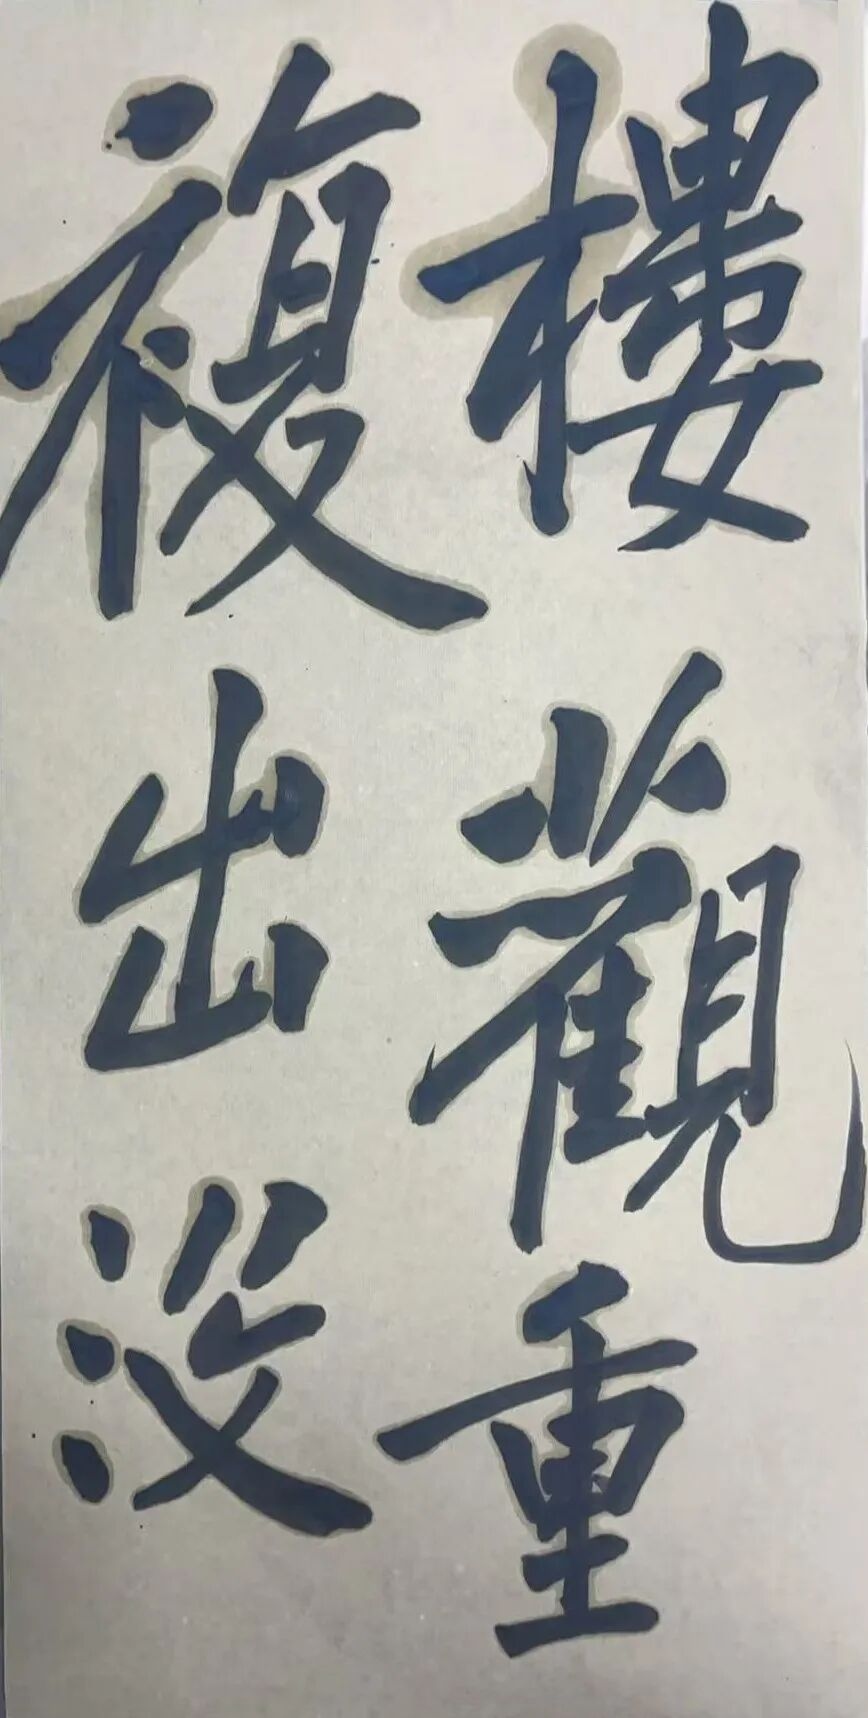 樓觀重
複出沒